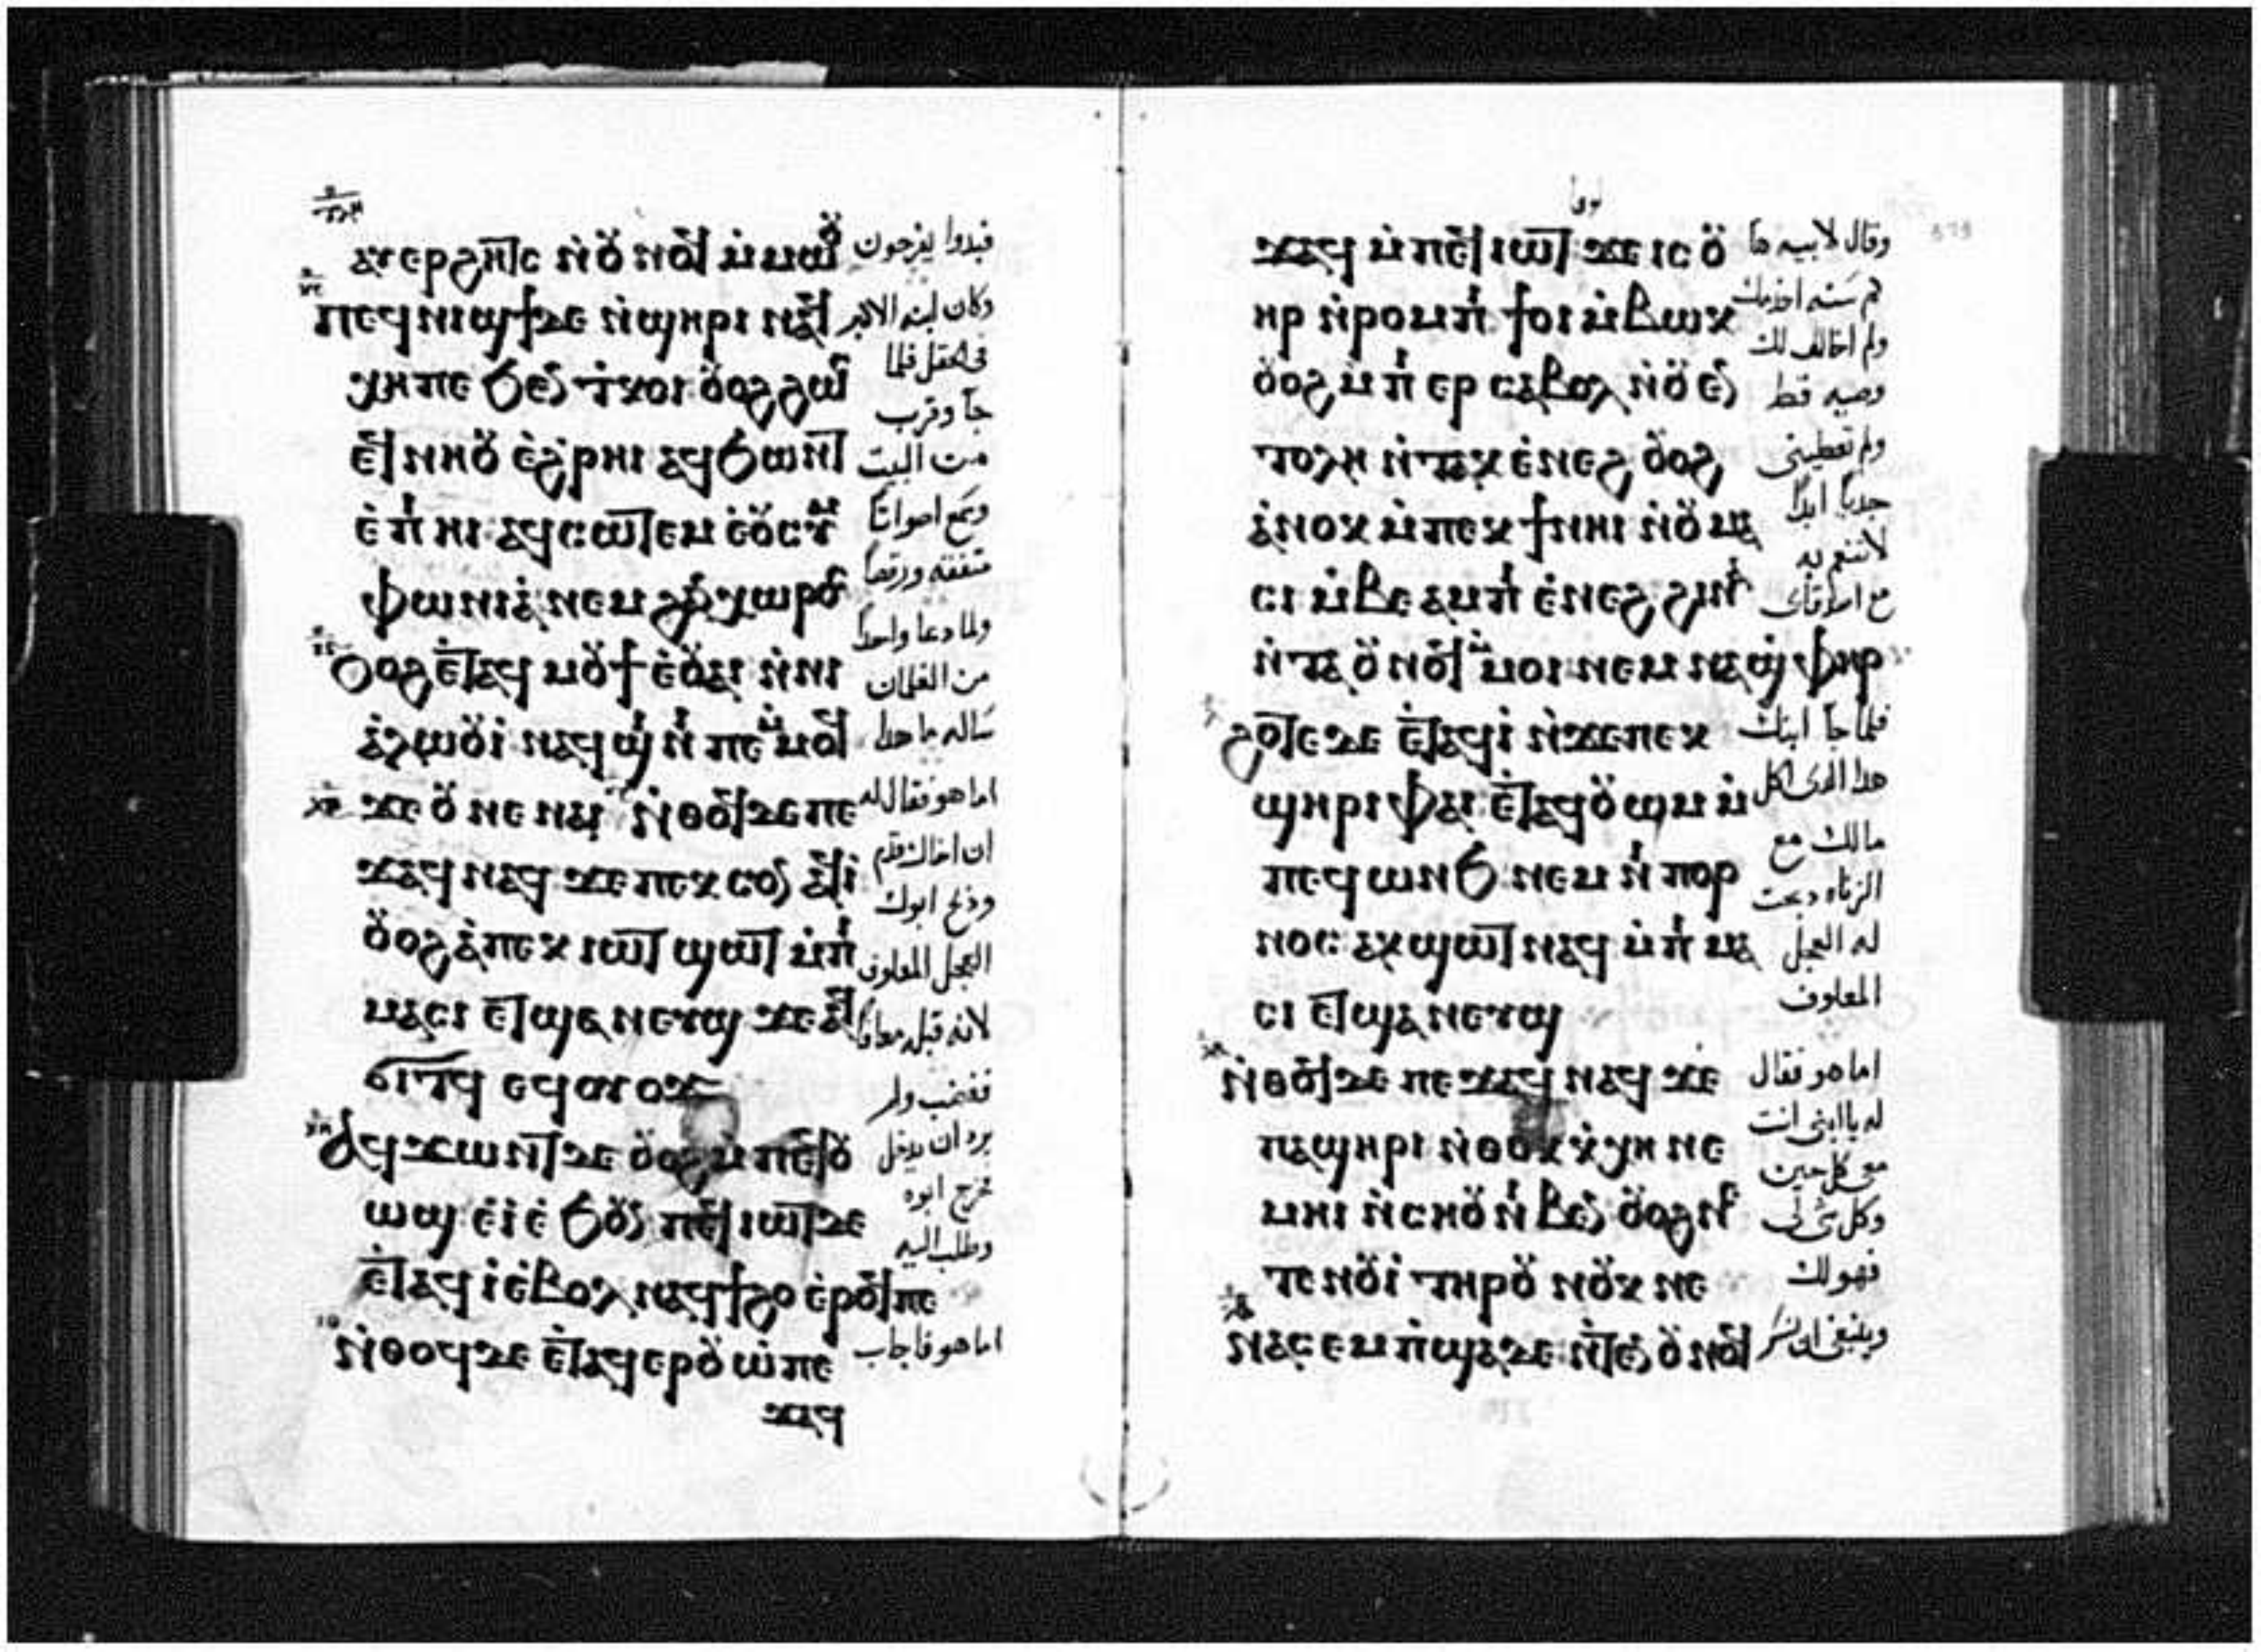 ⲁⲩⲉⲣϩⲏⲧⲥ ⲛ̀ⲟⲩⲛⲟϥ ⲙ̀ⲙⲱⲟⲩ
ⲡⲉϥⲛⲓϣϯⲇⲉ ⲛ̀ϣⲏⲣⲓ ⲛⲁϥ
ⲭⲏ ⲡⲉ ϧⲉⲛ ⲧ̀ⲕⲟⲓ ⲟⲩⲟϩ ϩⲱⲥ
ⲉϥⲛⲏⲟⲩ ⲉ̀ϩⲣⲏⲓ ⲁϥϧⲱⲛⲧ
ⲉ̀ⲡⲓⲏⲓ ⲁϥⲥⲱⲧⲉⲙ ⲉ̀ⲟⲩⲥⲩⲙ
ⲫⲱⲛⲓⲁ̀ ⲛⲉⲙ ϩⲁⲛⲭⲱⲣⲟⲥ
ⲟⲩⲟϩ ⲉ̀ⲧⲁϥⲙⲟⲩϯ ⲉ̀ⲟⲩⲁⲓ ⲛ̀ⲛⲓ
ⲁ̀ⲗⲱⲟⲩⲓ̀ ⲛⲁϥϣⲓⲛⲓ ⲡⲉ ⲙ̀ⲙⲟϥ
ϫⲉ ⲟⲩ ⲛⲉ ⲛⲁⲓ ⲛ̀ⲑⲟϥⲇⲉⲡⲉ
ϫⲁϥ ⲛⲁϥ ϫⲉ ⲡⲉⲕⲥⲟⲛ ⲁϥⲓ̀
ⲟⲩⲟϩ ⲁ̀ⲡⲉⲕⲓⲱⲧ ϣⲱⲧ ⲙ̀ⲡⲓ
ⲙⲁⲥⲓ ⲉⲧϣⲁⲛⲉⲩϣ ϫⲉ ⲁϥ
ϭⲓⲧϥ ⲉϥⲟⲩⲟϫ
ⲁϥϫⲱⲛⲧⲇⲉ ⲟⲩⲟϩ ⲙ̀ⲡⲉϥⲟⲩ
ⲱϣ ⲉ̀ⲓ̀ ⲉ̀ϧⲟⲩⲛ ⲡⲉϥⲓⲱⲧⲇⲉ
ⲉ̀ⲧⲁϥⲓ̀ ⲉ̀ⲃⲟⲗ ⲛⲁϥϯϩⲟ ⲉ̀ⲣⲟϥⲡⲉ
ⲛ̀ⲑⲟϥⲇⲉ ⲉ̀ⲧⲁϥⲉⲣⲟⲩⲱ̀ ⲡⲉ
ϫⲁϥ
فبدوا يفرحون
وكان ابنه الاكبر
فى الحقل فلما
جآ وقرب
من البيت
وسمع اصواتآ
متفقه ورقصآ
ولما دعا واحدآ
من الغلمان
ساله ما هدا
اما هو فقال له
ان اخاك قدم
وذبح ابوك
العجل المعلوف
لانه قبله معافا
فغضب ولم
يرد ان يدخل
فخرج ابوه
وطلب اليه
اما هو فاجاب
لوقا
ϫⲁϥ ⲙ̀ⲡⲉϥⲓⲱⲧ ϫⲉ ⲓⲥ ⲟⲩ
ⲏⲣ ⲛ̀ⲣⲟⲙⲡⲓ ϯⲟⲓ ⲙ̀ⲃⲱⲕ
ⲟⲩⲟϩ ⲙ̀ⲡⲓ ⲉⲣ ⲥⲁⲃⲟⲗ ⲛ̀ⲟⲩⲉⲛ
ⲧⲟⲗⲏ ⲛ̀ⲧⲁⲕ ⲉ̀ⲛⲉϩ ⲟⲩⲟϩ
ⲁ̀ⲛⲟⲕ ⲙ̀ⲡⲉⲕϯ ⲛⲏⲓ ⲛ̀ⲟⲩⲙⲁ
ⲥⲓ ⲙ̀ⲃⲁⲉⲙⲡⲓ ⲉ̀ⲛⲉϩ ϩⲓⲛⲁ
ⲛ̀ⲧⲁⲟⲩⲛⲟϥ ⲙ̀ⲙⲟⲓ ⲛⲉⲙ ⲛⲁϣⲫⲏⲣ
ϩⲟⲧⲉⲇⲉ ⲉ̀ⲧⲁϥⲓ̀ ⲛ̀ϫⲉⲡⲉⲕ
ϣⲏⲣⲓ ⲫⲁⲓ ⲉ̀ⲧⲁϥⲟⲩⲱⲙ ⲙ̀
ⲡⲉϥⲱⲛϧ ⲛⲉⲙ ⲛⲓⲡⲟⲣ
ⲛⲟⲥ ⲁⲕϣⲱⲧ ⲛⲁϥ ⲙ̀ⲡⲓⲙⲁ
ⲥⲓ ⲉⲧϣⲁⲛⲉⲩϣ
ⲛ̀ⲑⲟϥⲇⲉ ⲡⲉϫⲁϥ ⲛⲁϥ ϫⲉ
ⲡⲁϣⲏⲣⲓ ⲛ̀ⲑⲟⲕ ⲕ̀ⲭⲏ ⲛⲉ
ⲙⲏⲓ ⲛ̀ⲥⲏⲟⲩ ⲛⲓⲃⲉⲛ ⲟⲩⲟϩ ⲛⲏ
ⲧⲉ ⲛⲟⲩⲓ̀ ⲧⲏⲣⲟⲩ ⲛⲟⲩⲕ ⲛⲉ
ⲛⲁⲥⲉⲙⲡϣⲁⲇⲉ ⲛ̀ⲧⲉⲛⲟⲩⲛⲟϥ
وقال لابيه ها
كم سنه اخدمك
ولم اخالف لك
وصيه قط
ولم تعطينى
جديآ ابدآ
لاتنعم به
مع اصدقاى
فلما جآ ابنك
هدا الدى اكل
مالك مع
الزناه دبحت
له العجل
المعلوف
اما هو فقال
له يا ابنى انت
معى كل حين
وكل شى لى
فهو لك
وينبغى ان نسر